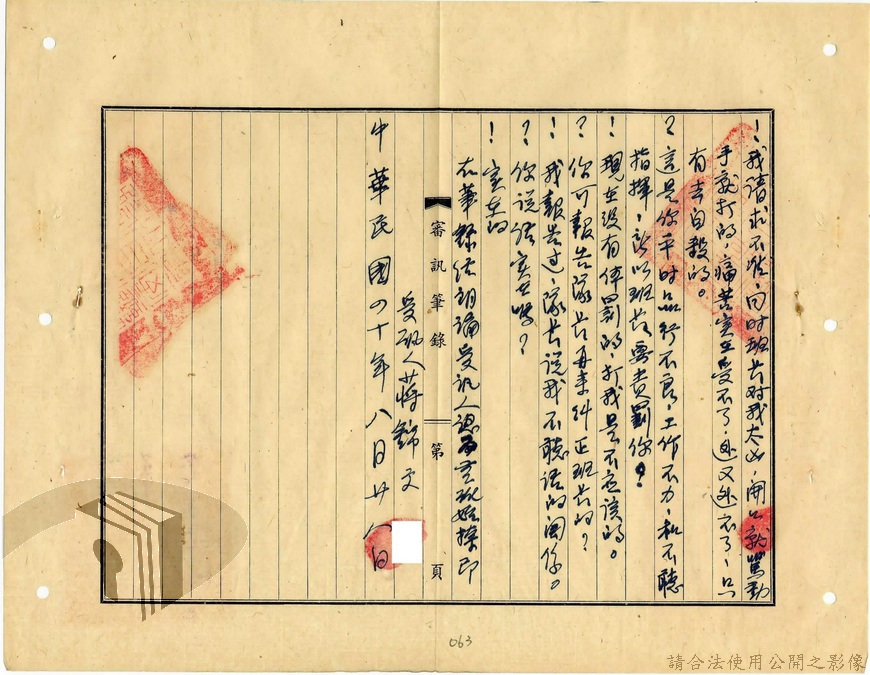 ！我請求不准，同时班长对我太凶，開口就罵動
手就打的，痛苦实在受不了，逃又逃不了，只
有去自殺的。
？這是你平时品行不良，工作不力，和不聽
指揮，所以班长要責罰你？
！現在没有体罰的，打我是不应該的。
？你可報告隊长再来糾正班长的？
！我報告过，隊长說我不聽话的関係。
？你說话实在嗎？
！实在的
右筆錄经朗論受訊人認為無訛始捺印
審訊筆錄 第 頁
受訊人蔣錦文
中華民國四十年八月廿八日
063
請合法使用公開之影像